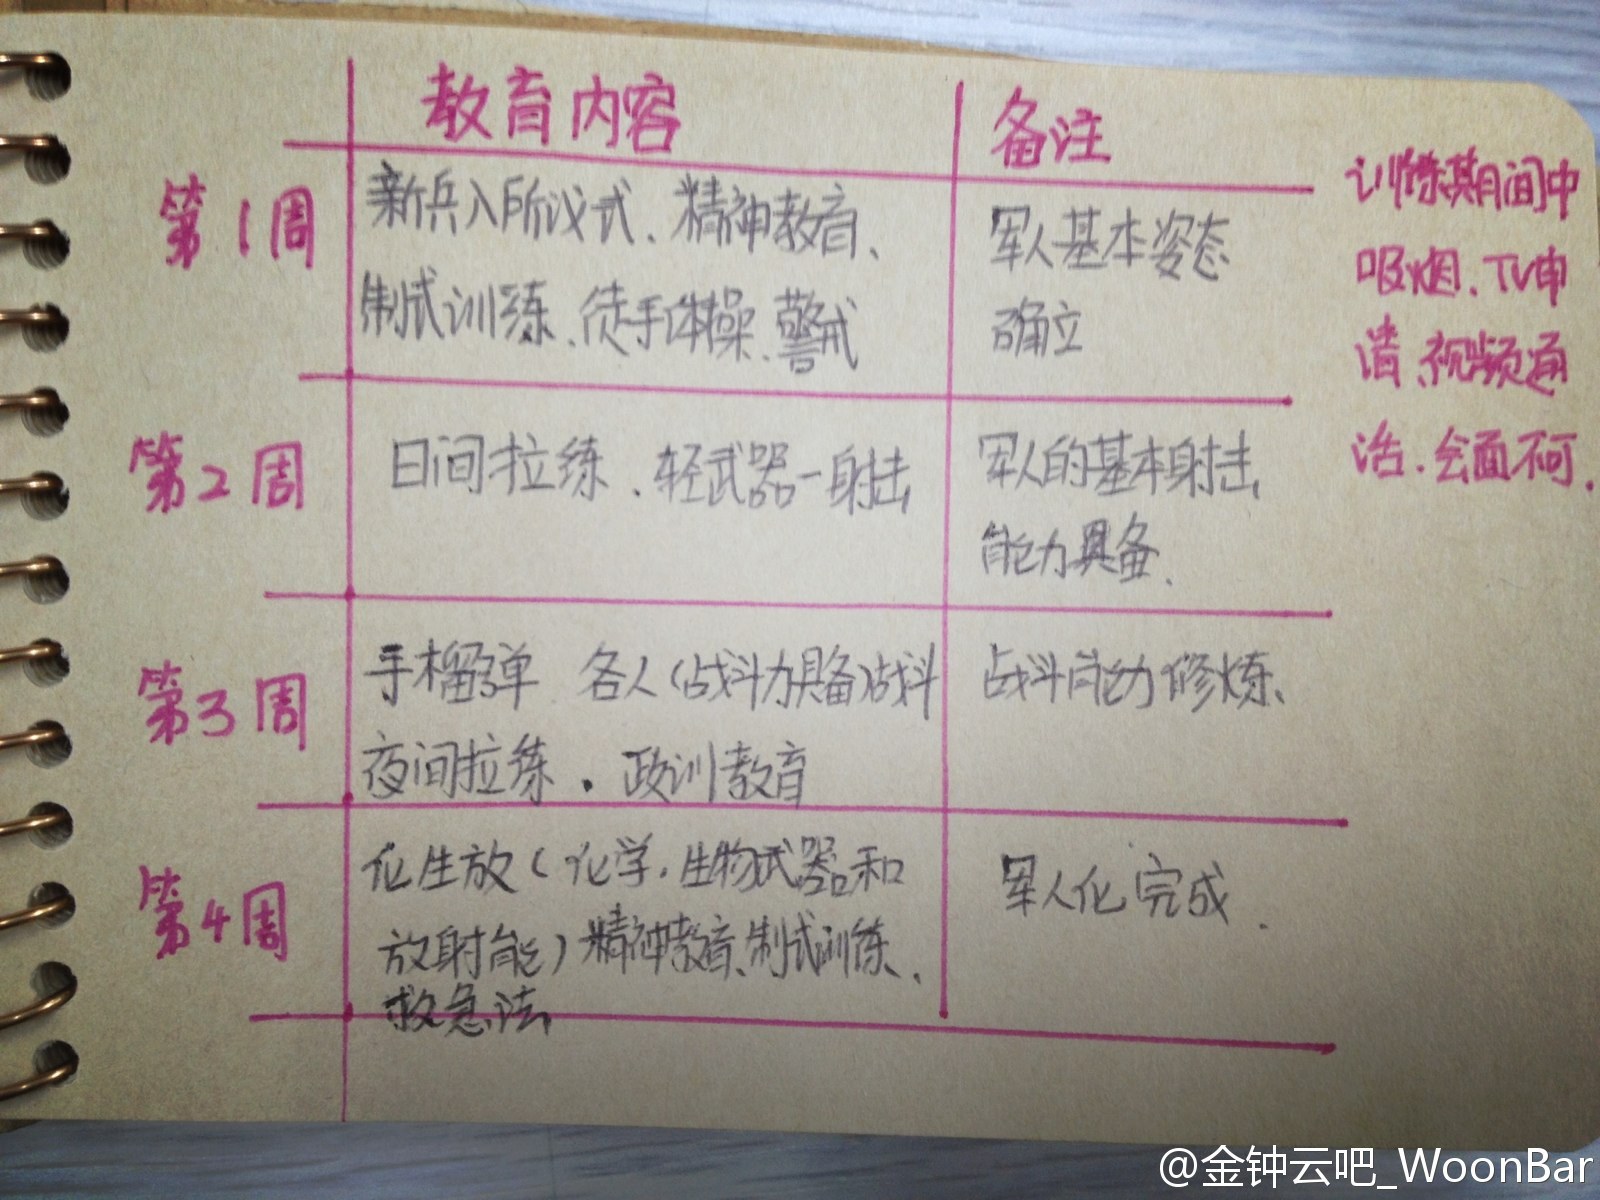 教育内容 备注
第1周 新兵入所议式、精神教育、
制式训练、徒手体操、警戒
军人基本姿态
确立
第2周 日间拉练、轻武器一射击
军人的基本射击
能力具备、
第3周 手榴弹 各人(战斗力具备)战斗
夜间拉练.政训教育
战斗能力修炼、
第4周 化生放(化学,生物武器和
放射能)精神教育、制式训练、
救急法
军人化完成.
训练期间中
吸烟、TV申
请、视频通
话、会面不可.
@金钟云吧_WoonBar